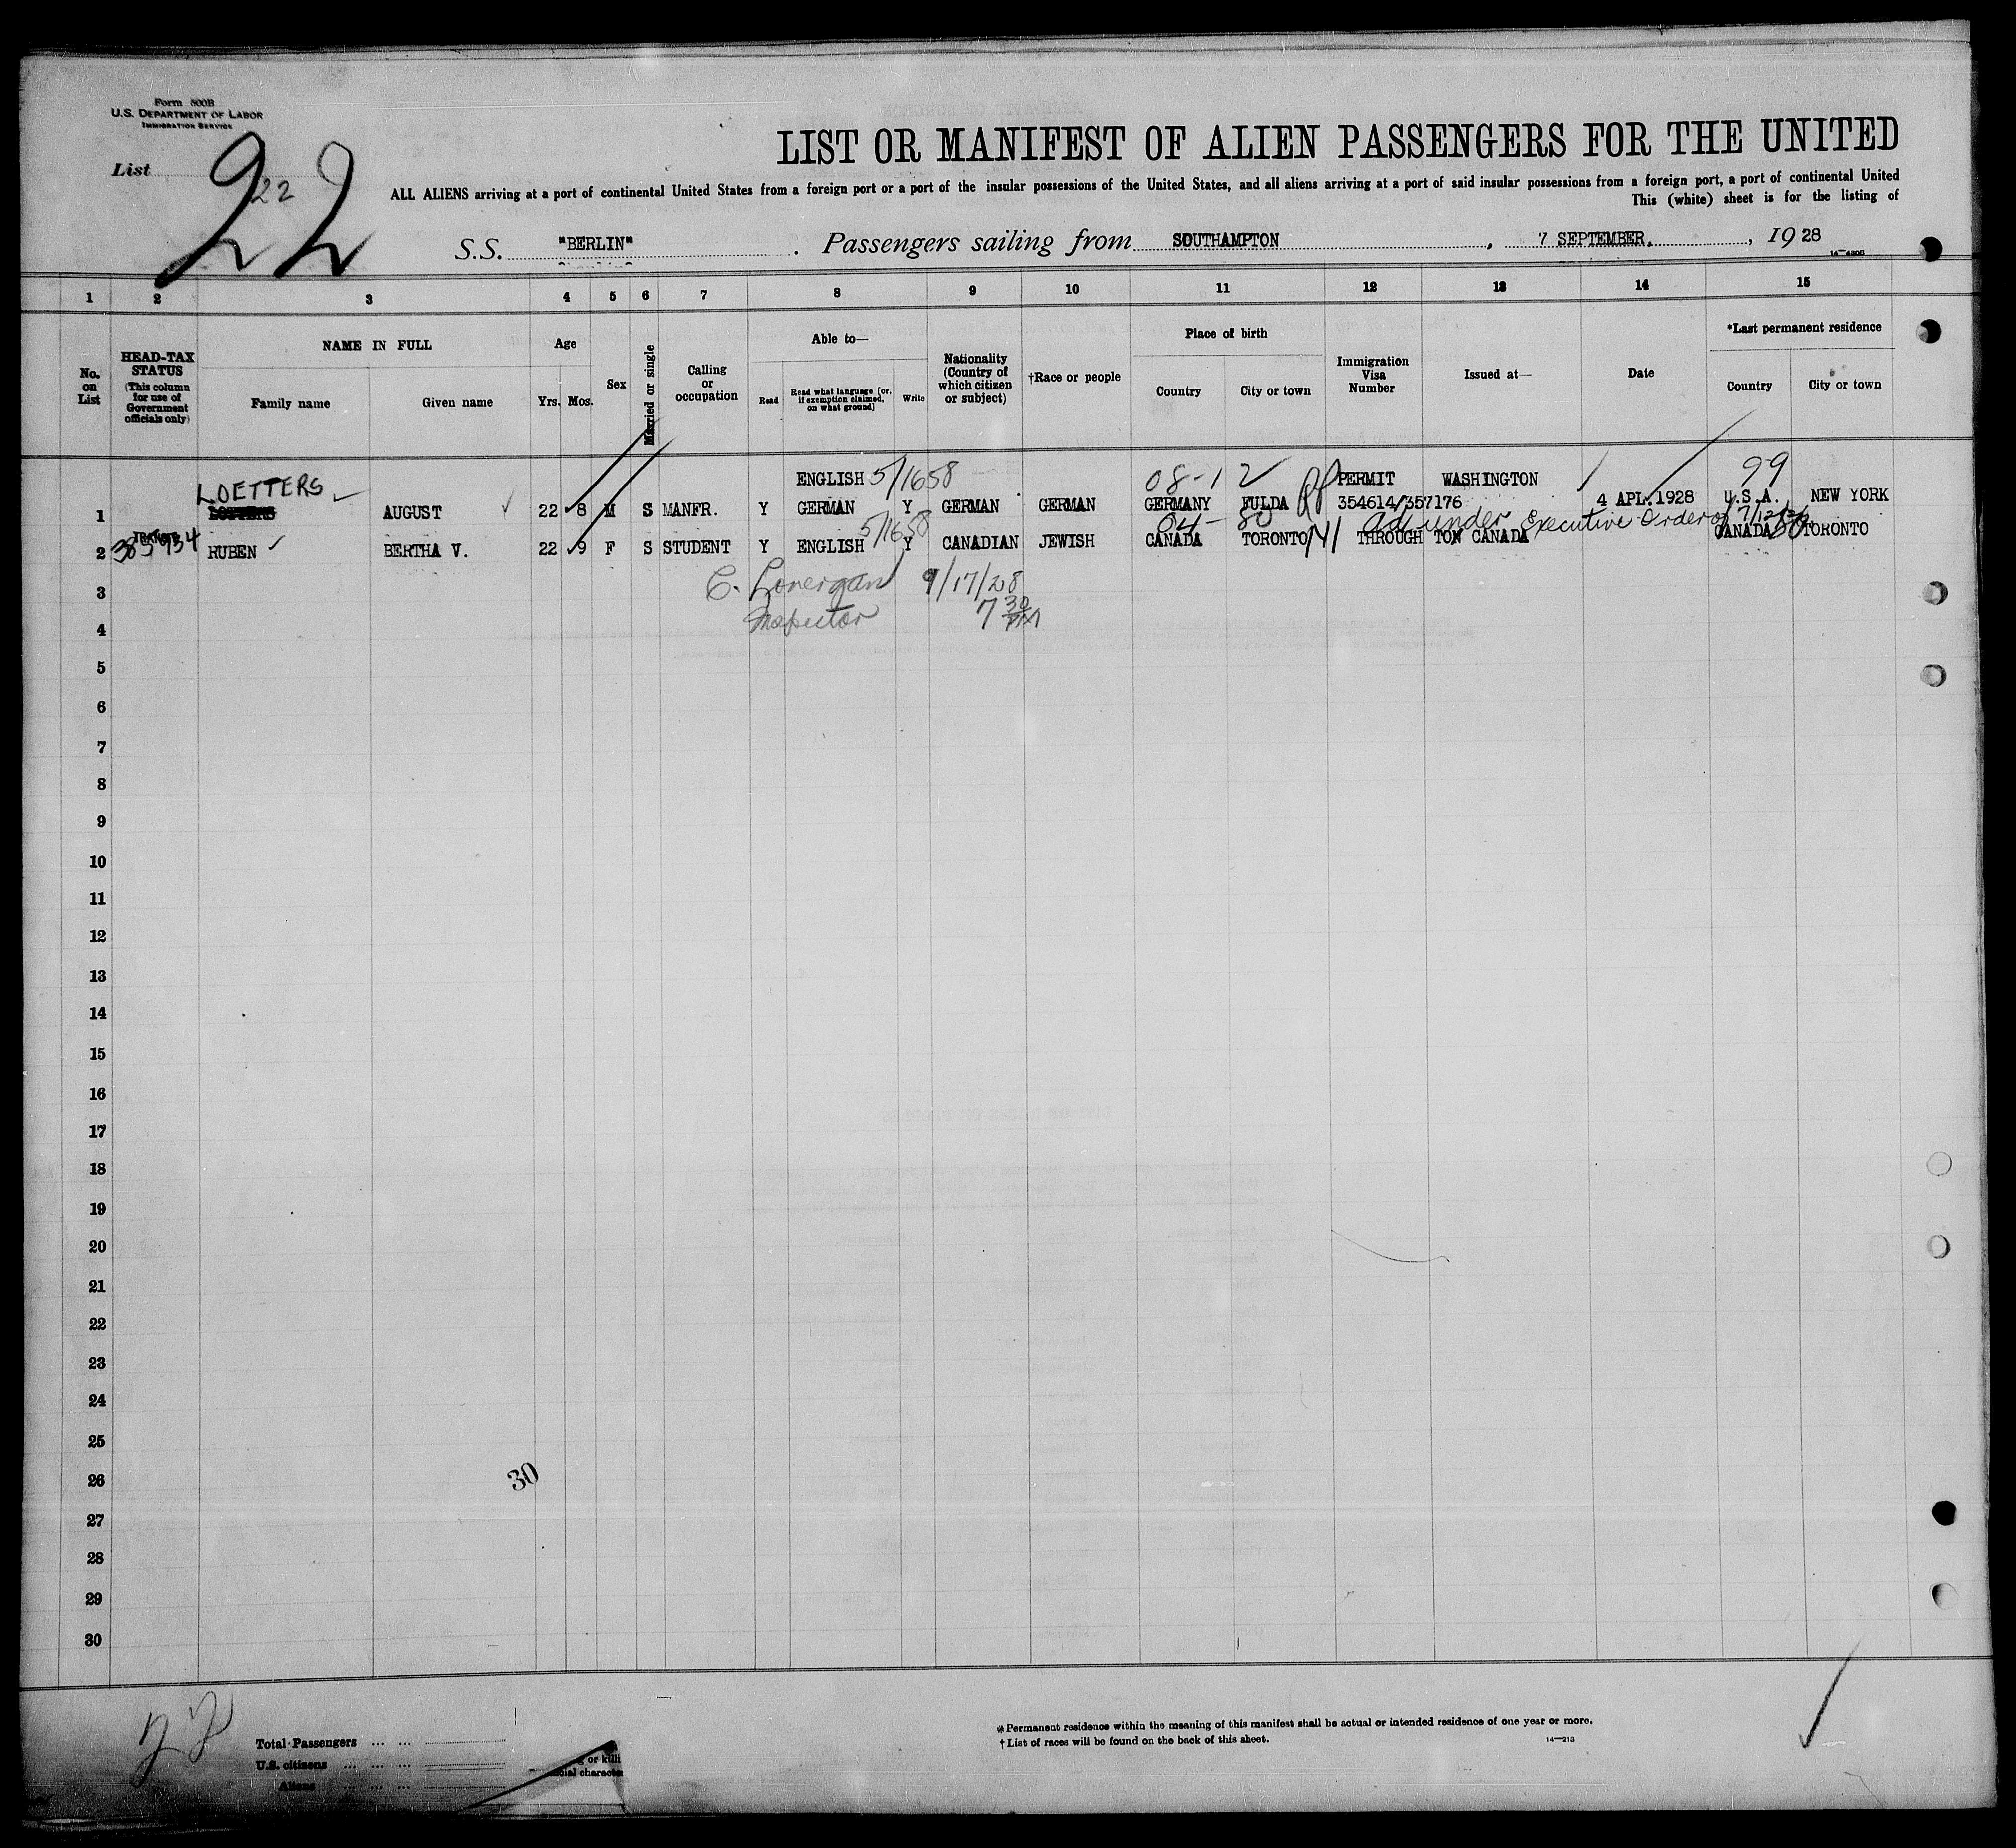 Form 500B
U.S. DEPARTMENT OF LABOR
IMMIGRATION SERVICE
List 22
22
LIST OR MANIFEST OF ALIEN PASSENGERS FOR THE UNITED
ALL ALIENS arriving at a port of continental United States from a foreign port or a port of the insular possessions of the United States, and all aliens arriving at a port of said insular possessions from a foreign port, a port of continental United
This (white) sheet is for the listing of
S.S. "BERLIN". Passengers sailing from SOUTHAMPTON, 7 SEPTEMBER, 1928
1 2 3 4 5 6 7 8 9 10 11 12 13 14 15
No. on List
HEAD-TAX STATUS (This column for use of Government officials only)
NAME IN FULL
Family name Given name
Age
Yrs. Mos.
Sex
Married or single
Calling or occupation
Able to—
Read Read what language [or, if exemption claimed, on what ground] Write
Nationality (Country of which citizen or subject)
†Race or people
Place of birth
Country City or town
Immigration Visa Number
Issued at—
Date
*Last permanent residence
Country City or town
LOETTERS ENGLISH 5/1658 08-12 PERMIT WASHINGTON 99
1 AUGUST 22 8 M S MANFR. Y GERMAN Y GERMAN GERMAN GERMANY FULDA 354614/357176 4 APL.1928 U.S.A. NEW YORK
5/1658 04-80 under Executive Order of
2 385934 RUBEN BERTHA V. 22 9 F S STUDENT Y ENGLISH Y CANADIAN JEWISH CANADA TORONTO THROUGH TO CANADA CANADA TORONTO
3 C. Lonergan 9/17/28
4 Inspector 7 30 PM
5
6
7
8
9
10
11
12
13
14
15
16
17
18
19
20
21
22
23
24
25
26 30
27
28
29
30
Total Passengers ... ...
U.S. citizens ... ... ...
Aliens ... ... ...
or killi
cial characte
* Permanent residence within the meaning of this manifest shall be actual or intended residence of one year or more.
† List of races will be found on the back of this sheet.
14—213